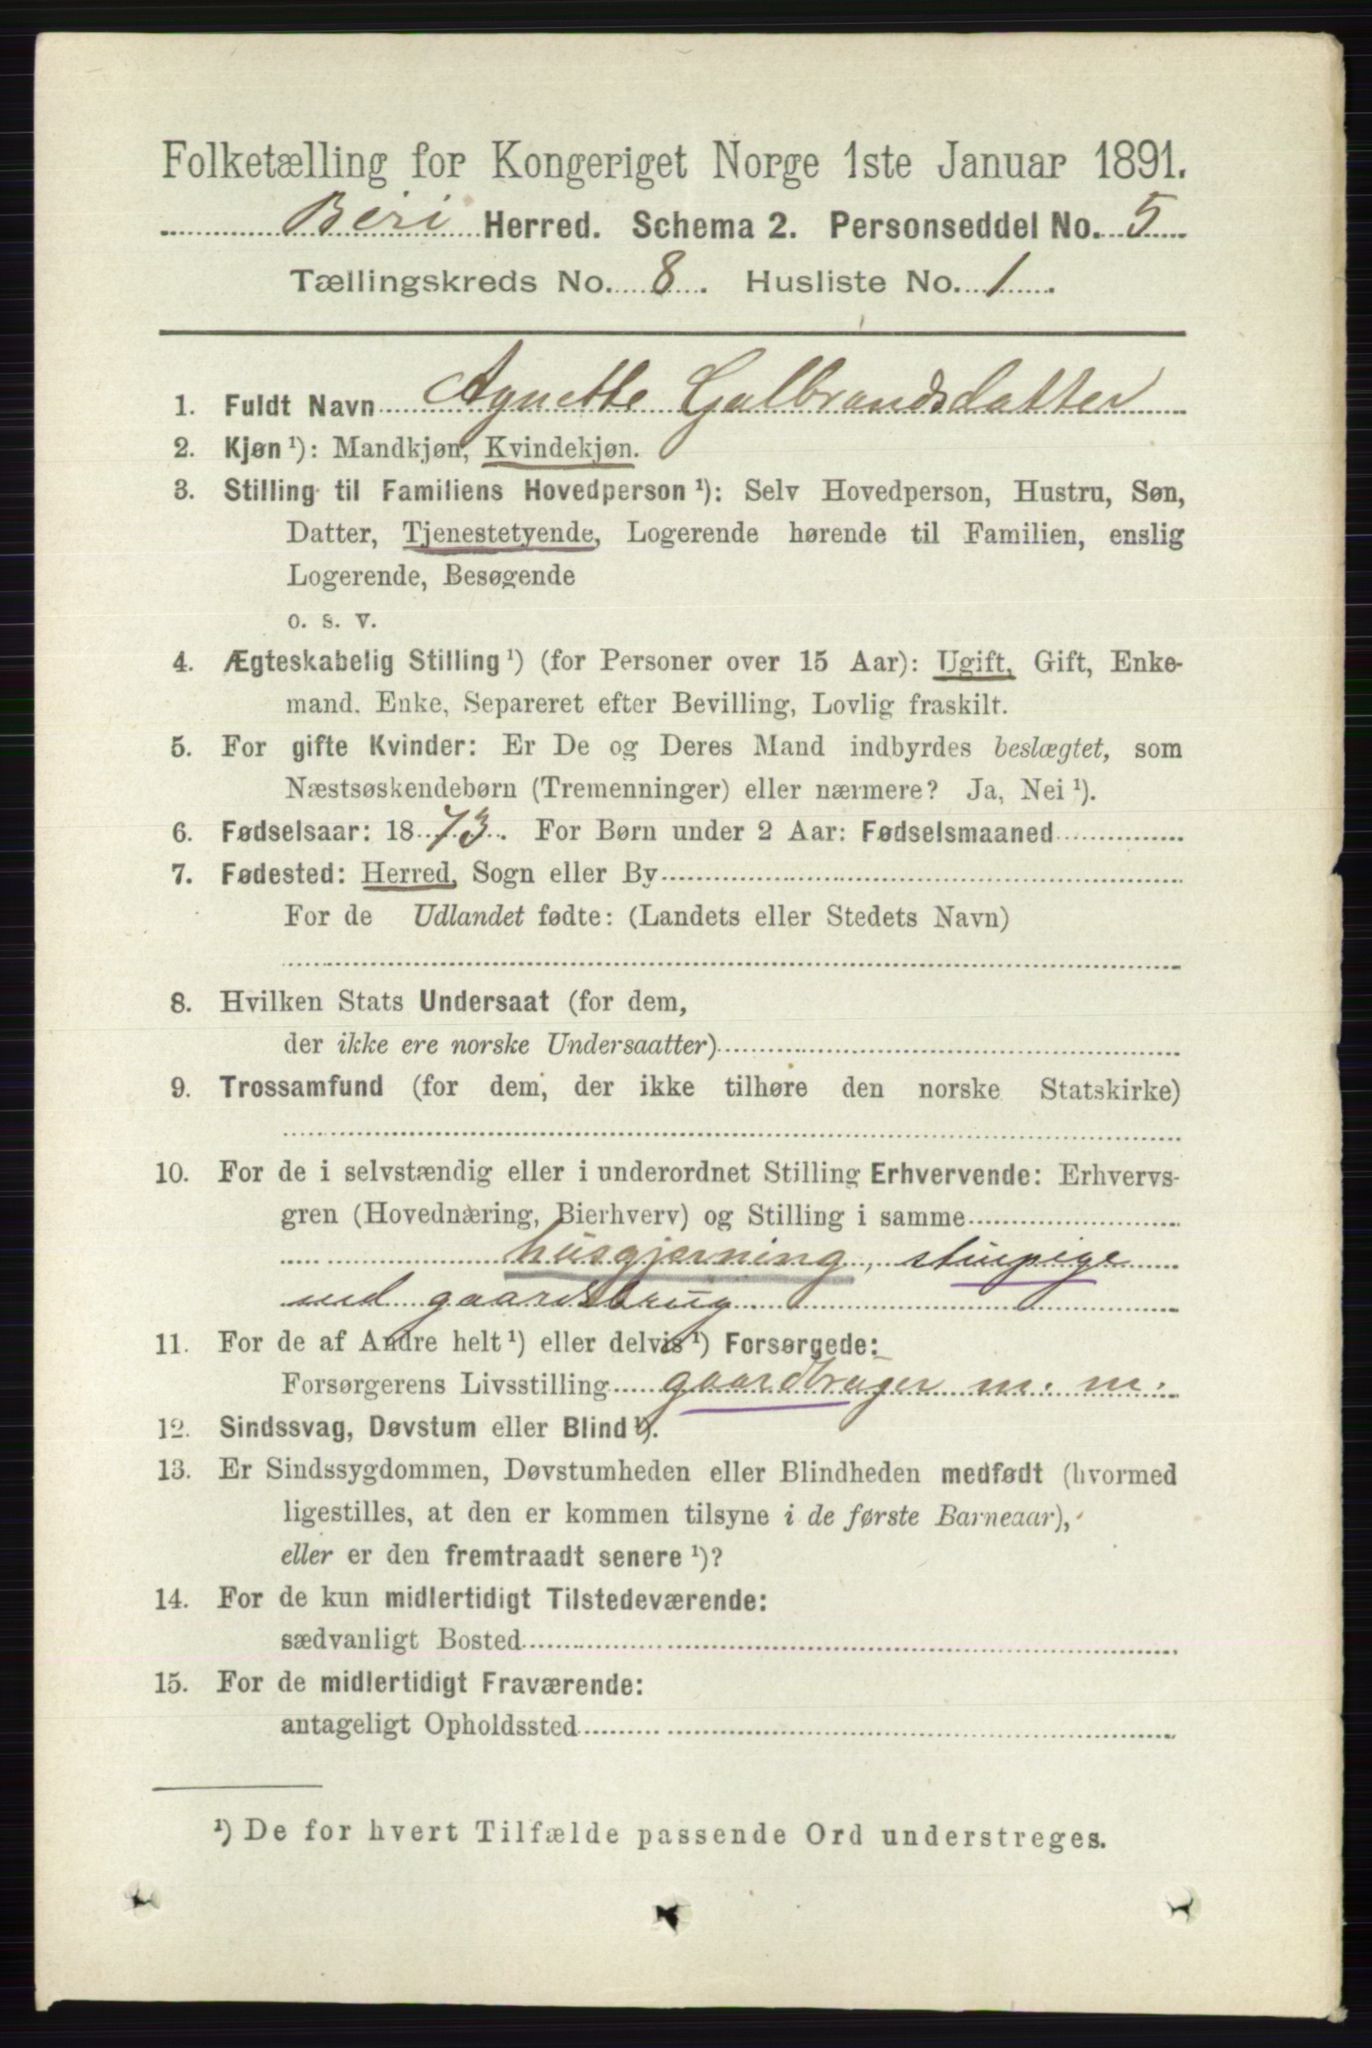 Folketælling for Kongeriget Norge 1ste Januar 1891.
Biri Herred. Schema 2. Personseddel No. 5
Tællingskreds No. 8. Husliste No. 1
1. Fuldt Navn Agnette Gulbrandsdatter
2. Kjøn ¹): Mandkjøn, Kvindekjøn.
3. Stilling til Familiens Hovedperson ¹): Selv Hovedperson, Hustru, Søn,
Datter, Tjenestetyende, Logerende hørende til Familien, enslig
Logerende, Besøgende
o. s. v.
4. Ægteskabelig Stilling ¹) (for Personer over 15 Aar): Ugift, Gift, Enke-
mand, Enke, Separeret efter Bevilling, Lovlig fraskilt.
5. For gifte Kvinder: Er De og Deres Mand indbyrdes beslægtet, som
Næstsøskendebørn (Tremenninger) eller nærmere? Ja, Nei ¹).
6. Fødselsaar: 1873. For Børn under 2 Aar: Fødselsmaaned
7. Fødested: Herred, Sogn eller By
For de Udlandet fødte: (Landets eller Stedets Navn)
8. Hvilken Stats Undersaat (for dem,
der ikke ere norske Undersaatter)
9. Trossamfund (for dem, der ikke tilhøre den norske Statskirke)
10. For de i selvstændig eller i underordnet Stilling Erhvervende: Erhvervs-
gren (Hovednæring, Bierhverv) og Stilling i samme
husgjerning, stuepige
ved gaardsbrug
11. For de af Andre helt ¹) eller delvis ¹) Forsørgede:
Forsørgerens Livsstilling gaardbruger m. m.
12. Sindssvag, Døvstum eller Blind ¹).
13. Er Sindssygdommen, Døvstumheden eller Blindheden medfødt (hvormed
ligestilles, at den er kommen tilsyne i de første Barneaar),
eller er den fremtraadt senere ¹)?
14. For de kun midlertidigt Tilstedeværende:
sædvanligt Bosted
15. For de midlertidigt Fraværende:
antageligt Opholdssted
¹) De for hvert Tilfælde passende Ord understreges.